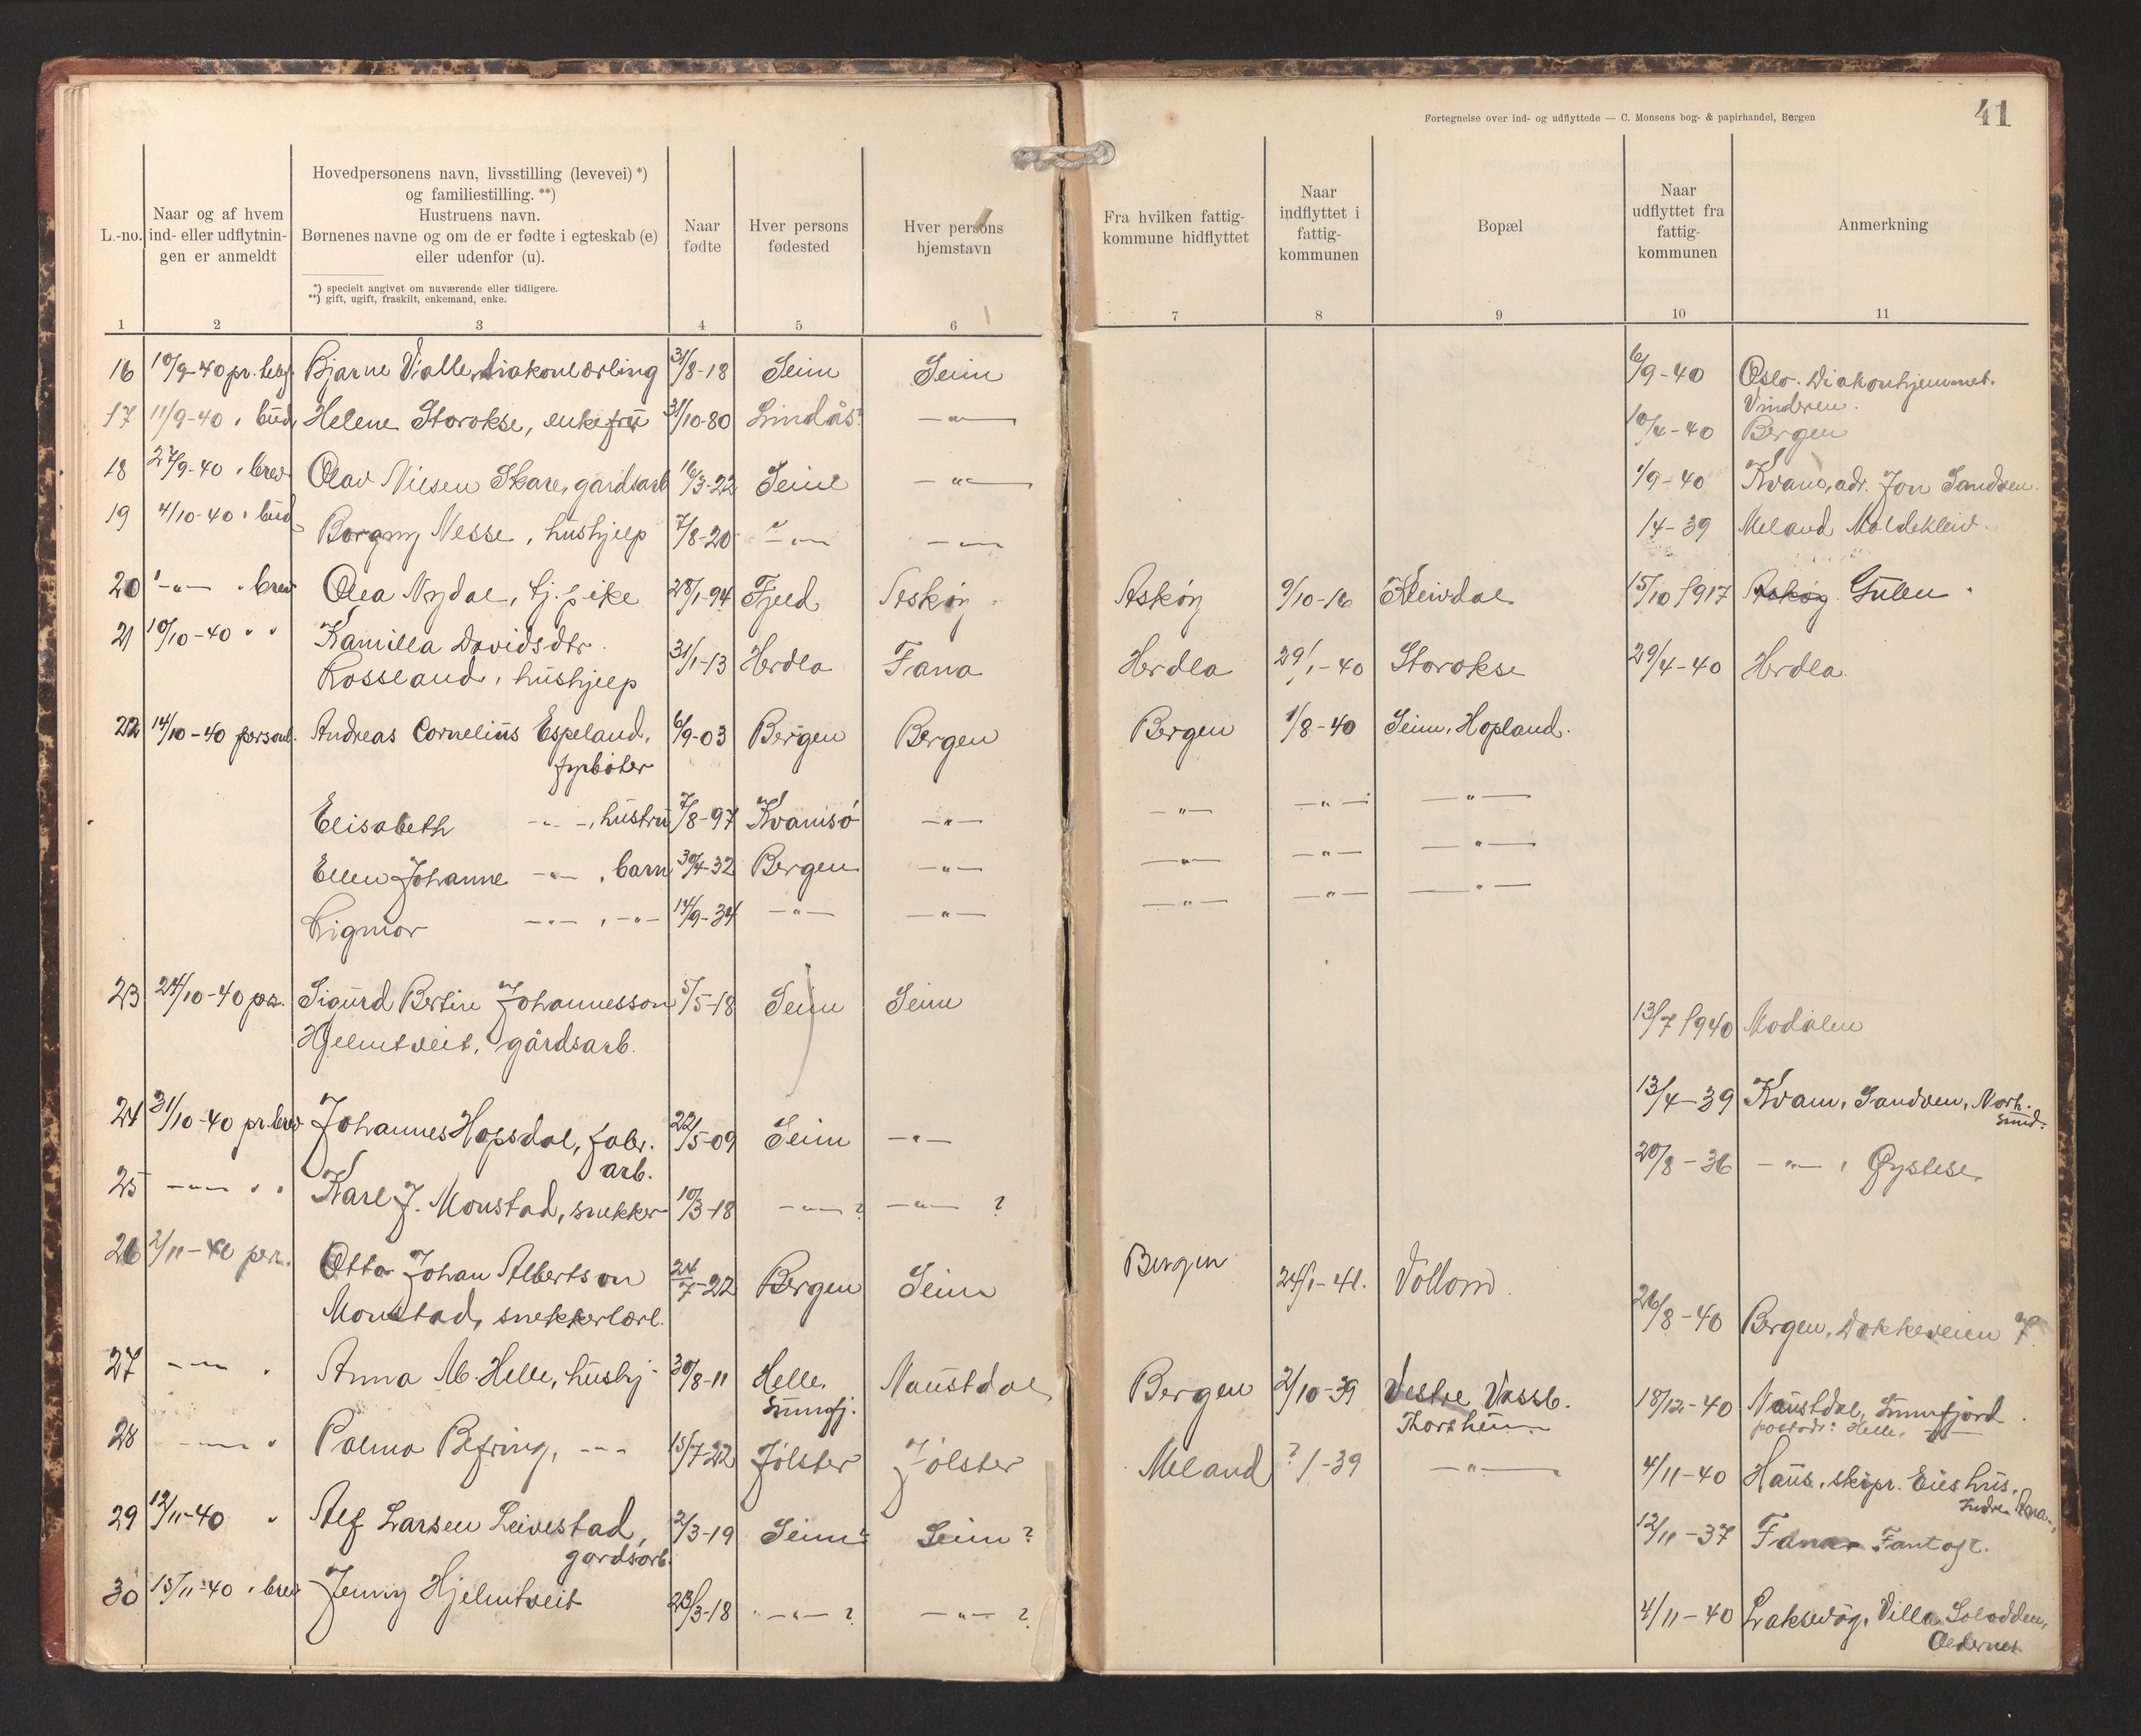 Fortegnelse over ind- og udflyttede — C. Monsens bog- & papirhandel, Bergen
41
L.-no.
Naar og af hvem ind- eller udflytnin-gen er anmeldt
Hovedpersonens navn, livsstilling (levevei) *)
og familiestilling. **)
Hustruens navn.
Børnenes navne og om de er fødte i egteskab (e)
eller udenfor (u).
*) specielt angivet om nuværende eller tidligere.
**) gift, ugift, fraskilt, enkemand, enke.
Naar fødte
Hver persons fødested
Hver persons hjemstavn
Fra hvilken fattig-kommune hidflyttet
Naar indflyttet i fattig-kommunen
Bopæl
Naar udflyttet fra fattig-kommunen
Anmerkning
1 2 3 4 5 6 7 8 9 10 11
16 10/9-40 pr. telef. Bjarne Valle, diakonlærling 31/8-18 Seim Seim 6/9-40 Oslo. Diakonhjemmet.
Vinderen.
17 11/9-40 " bud, Helene Storokse, enkefru 31/10-80 Lindås? —"— 10/4-40 Bergen
18 27/9-40 " brev Olav Nilsen Skare, gårdsarb 16/3-22 Seim —"— 1/9-40 Kvam, adr. Jon Sandven.
19 4/10-40 " bud Borgny Nesse, hushjelp 7/8-20 —"— —"— 14-39 Meland Moldekleiv.
20 —"— " brev Olea Nydal, tj. pike 28/1-94 Fjeld Askøy Askøy 9/10-16 Eivdal 15/10 1917 Askøy Gulen
21 10/10-40 " " Kamilla Davidsdtr.
Rossland, hushjelp 31/1-13 Herdla Fana Herdla 29/1-40 Storokse 29/4-40 Herdla.
22 14/10-40 personl. Andreas Cornelius Espeland,
fyrbøter 6/9-03 Bergen Bergen Bergen 1/8-40 Seim, Hopland.
Elisabeth —"—, hustru 7/8-97 Kvamsø —"— —"— —"— —"—
Ellen Johanne —"—, barn 30/4-32 Bergen —"— —"— —"— —"—
Rigmor —"—, —"— 14/9-34 —"— —"— —"— —"— —"—
23 24/10-40 pers. Sigurd Bertin Johannesson
Hjelmtveit, gårdsarb. 5/5-18 Seim Seim 13/7 1940 Modalen
24 31/10-40 pr. brev Johannes Hopsdal, fabr.
arb. 22/5-09 Seim —"— 13/4-39 Kvam, Sandven, Norh.
sund.
25 —"— " " Karl J. Monstad, snekker 10/3-18 —"— ? —"— ? 20/8-36 —"—, Øystese
26 2/11-40 per. Otto Johan Albertson
Monstad, snekkerlærl. 24/7-22 Bergen Seim Bergen 24/1-41. Vollom 26/8-40 Bergen, Dokkeveien 7.
27 —"— " Anna M. Helle, hushj. 30/8-11 Helle,
Sunnfj. Naustdal Bergen 2/10-39 Vestre Vassb.
Thorsheim 18/12-40 Naustdal, Sunnfjord.
postadr: Helle, —"—
28 —"— " Palma Befring, —"— 15/7-22 Jølster Jølster Meland ?/-39 —"— 4/11-40 Haus, skipr. Eies hus,
Indre Arna.
29 12/11-40 " Alf Larsen Leivestad,
gårdsarb. 2/3-19 Seim? Seim? 12/11-37 Fana Fantoft.
30 15/11-40 " brev Jenny Hjelmtveit 23/3-18 —"— ? —"— ? 4/11-40 Laksevåg, Villa Solodden,